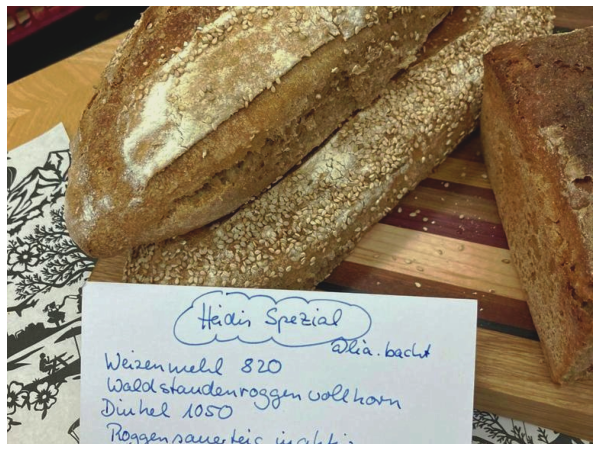 Heidis Spezial
@lia.backt
Weizenmehl 820
Waldstaudenroggenvollkorn
Dinkel 1050
Roggensauerteig inaktiv